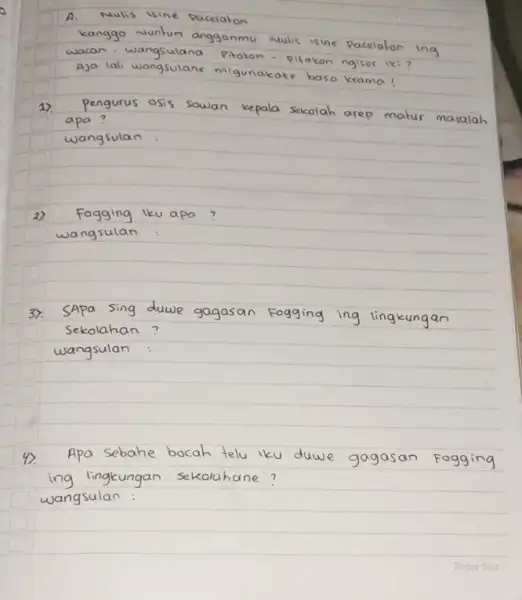 A. Nulis isine pacelaton
kanggo nuntun anggonmu nulis isine pacelaton ing
wacan. wangsulana pitakon - pitakon ngisor iki ?
Aja lali wangsulane migunakake basa krama !
1). pengurus osis sowan kepala sekolah arep matur masalah
apa ?
wangsulan :
2) Fogging iku apa ?
wangsulan :
3). SApa sing duwe gagasan Fogging ing lingkungan
Sekolahan ?
wangsulan :
4). Apa sebabe bocah telu iku duwe gagasan Fogging
ing lingkungan sekolahane ?
wangsulan :